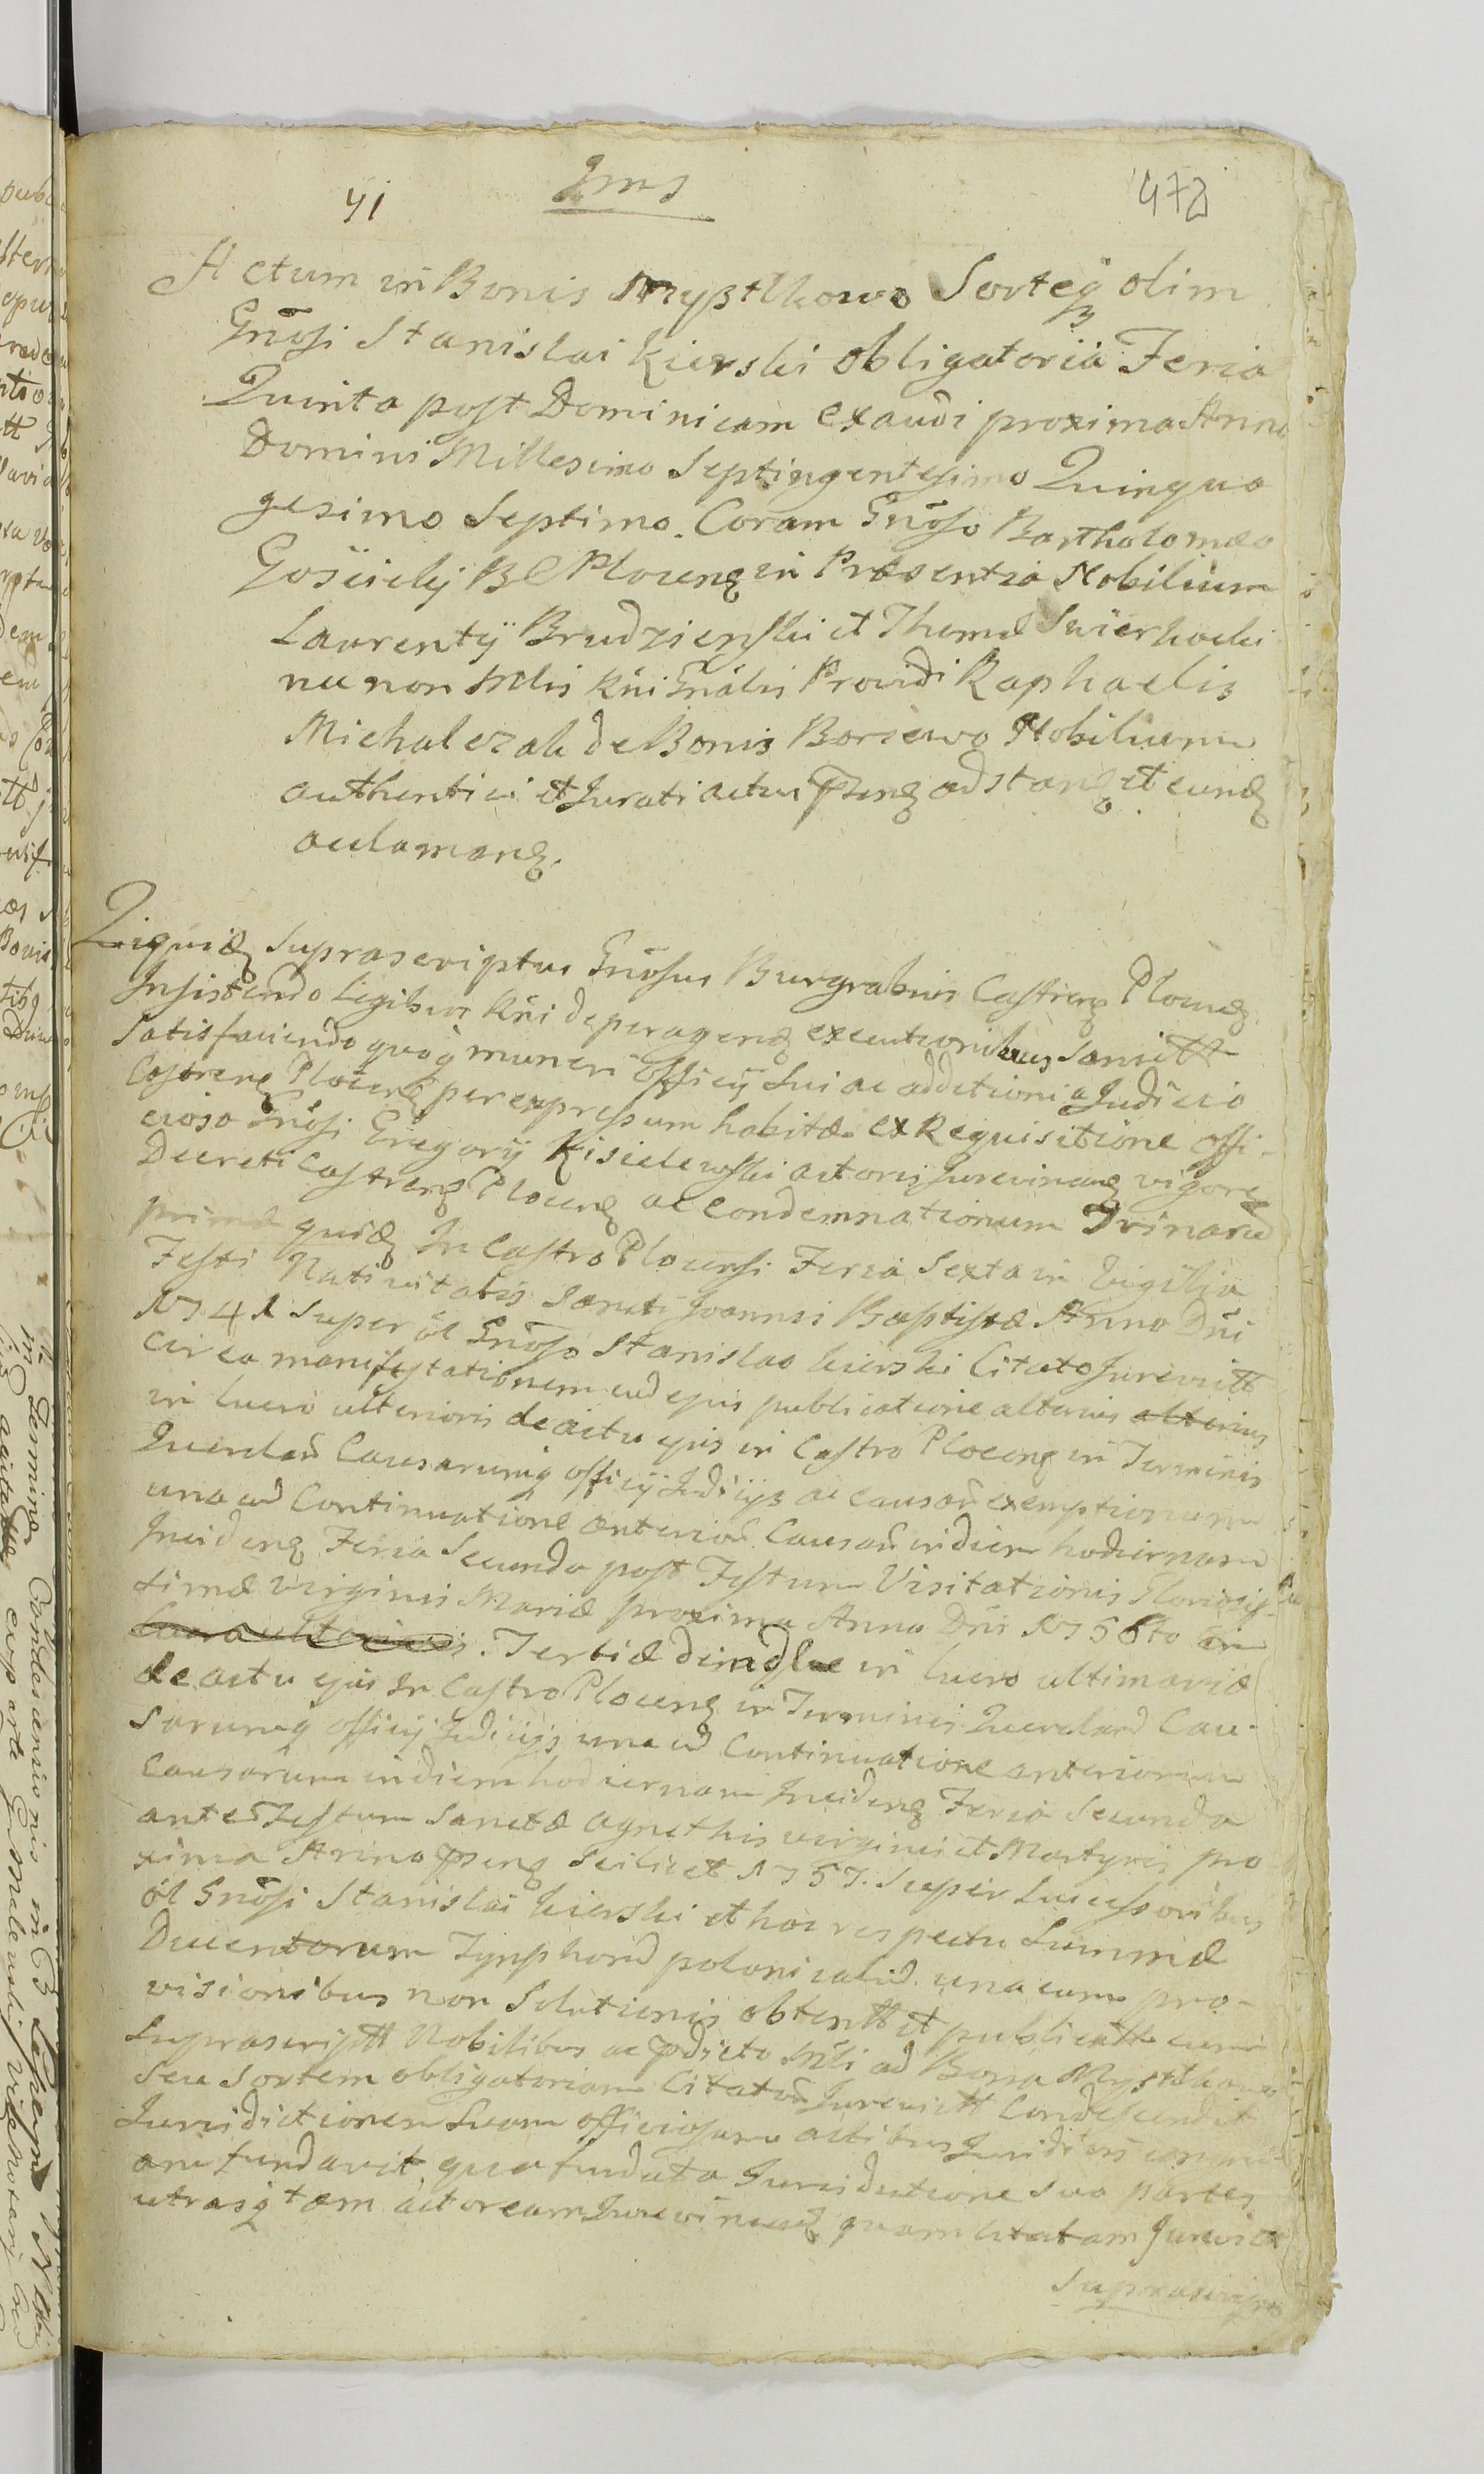 41 Jms 472
Actum in Bonis Mystkowo Sorteq olim
Gnosi Stanislai Kierski obligatoria Feria
Quinta post Dominicam Exaudi proxima Anno
Domini Millesimo Septingentesimo Quinqua
gesimo Septimo. Coram Gnoso Bartholomæo
Gosiicki BC Plocens in Præsentia Nobilium
Laurentÿ Brudzienski et Thomæ Swierkocki
nec non Mlis Rni Gnalis Providi Raphaelis
Michalczak de Bonis Borzewo Nobilium
authentici et Jurati actui psens adstans et eund
aclamans.
Qiquid Suprascriptus Gnosus Burgrabius Castrens Plocens
Insistendo Legibus Rni de peragend executionibus Sancitt
Satisfaciendo quoq muneri officÿ Sui ac additioni a Judicio
Castrens Plocens per expressum habitæ ex Requisitione offi-
ciosa Gnosi Gregorÿ Kisielewski actoris Jurevincens vigore
Decreti Castrens Plocens ac Condemnationum Trinarū
primæ quid In Castro Plocensi Feria Sexta in Vigilia
Festi Nativitatis Sancti Joannis Baptistæ Anno Dni
1741 Super ol Gnoso Stanislao Kierski Citato Jurevictt
Circa manifestationem cud ejus publicatione alterius alterius
in lucro ulterioris de actu ejus in Castro Plocens in Terminis
Querelarū Causarumq officÿ Judicÿs ac causarū exemptionum
una cū Continuatione anteriorū Causarū in diem hodiernam
Incidens Feria Secunda post Festum Visitationis Gloriosis-
simæ Virginis Mariæ proxima Anno Dni 1756to in
. Tertiæ demd in lucro ultimariæ
de actu ejus In Castro Plocens in Terminis Querelarū Cau-
sarumq officÿ Judicÿs una cū Continuatione anteriorum
Causarum in diem hodiernam Incidens Feria Secunda
ante Festum Sanctæ Agnethis virginis et Martyris pro
xima Anno psens Scilicet 1757. Super Successoribus
ol Gnosi Stanislai Kierski et hoc respectu Summæ
Ducentorum Tynphorū polonicaliū una cum pro-
visionibus non Solutionis obtentt et publicatt cum
Suprascriptt Nobilibus ac pdicto Mli ad Bona Mystkowo
Seu Sortem obligatoriam Citatorū Jurevictt Condescendit
Jurisdictionem Suam officiosam actibus Juridicis
am fundavit, qua fundata Jurisdictione Sua partes
utrasq tam actoream Jurevincens quam citatam Jurevict
Suprascrip